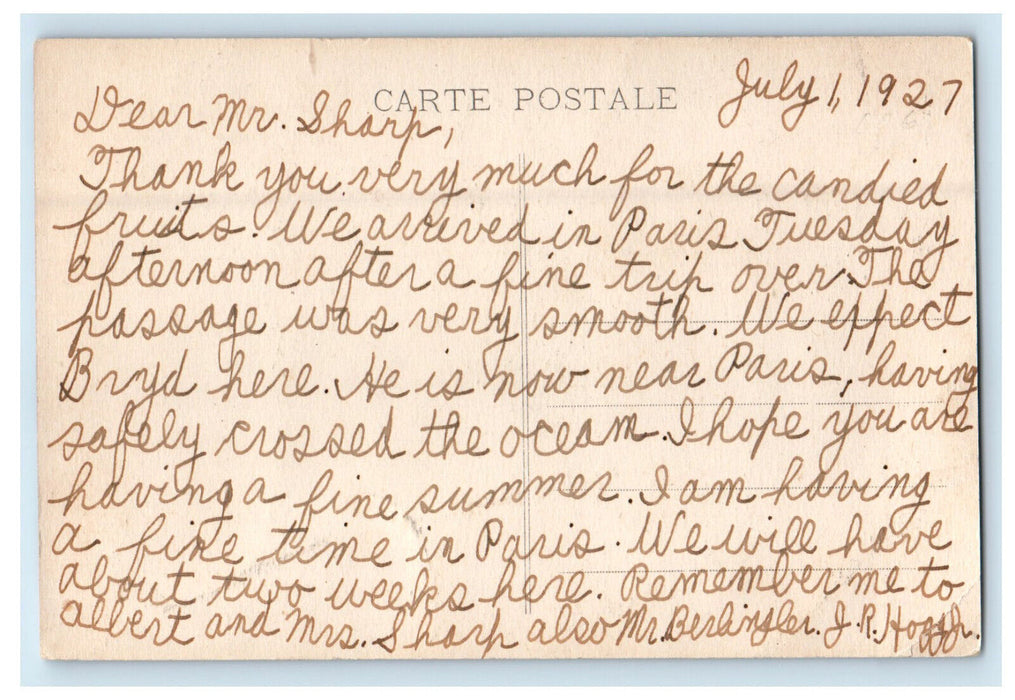 CARTE POSTALE
July 1, 1927
Dear Mr. Sharp,
Thank you very much for the candied
fruits. We arrived in Paris Tuesday
afternoon after a fine trip over. The
passage was very smooth. We expect
Bryd here. He is now near Paris, having
safely crossed the ocean. I hope you are
having a fine summer. I am having
a fine time in Paris. We will have
about two weeks here. Remember me to
Albert and Mrs. Sharp also Mr. J. R. Jr.